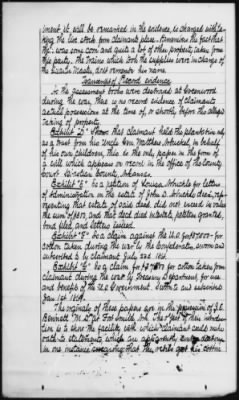 ment, it will be remarked in the evidence, is charged with ta-
king the live stock from claimants place. Remembers the fact that
some corn and quite a lot of other property taken from
his party. The trains which took the supplies were in charge of
the Master, don't remember his name.
Summary of Record evidence
As the assessment books were destroyed at Greenwood
during the war, there is no record evidence of claimants
actual possessions at the time of, or shortly before the alleged
taking of property.
Exhibit "D" Shows that claimant held the plantation only
as a trust from his Uncle Gen. Matthew in behalf
of his own children, this is the only paper in the form of
a will which appears on record in the office of the County
Court Sebastian County, Arkansas.
Exhibit "E" is a petition of Louisa for letters
of administration in the estate of John decd.
representing that estate of said decd. did not exceed in value
the sum of and that decd. died intestate, petition granted,
bond filed, and letters issued.
Exhibit "F" is a claim against the U.S. for for
cotton taken during the war by the Confederates, sworn and
subscribed to by claimant July 22d 1868.
Exhibit "G" is a claim for for cotton taken from
claimant during the war by Treasury Department for use
and benefit of the U.S. Government. Sworn to and subscribed
Jan 1st 1869.
The originals of these papers are in the possession of J.E.
Bennett M.D. at Fort Smith Ark. The object of their introduc-
tion is to show the facility with which claimant could make
oath to statements which are apparently
in one instance swearing that the rebels got his cotton